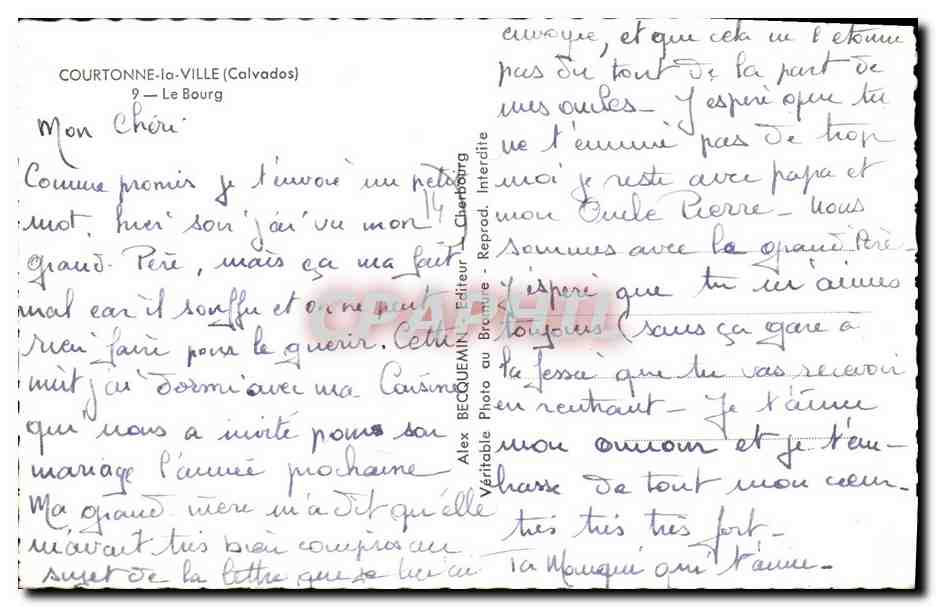 COURTONNE-la-VILLE (Calvados)
9 — Le Bourg
Mon Chéri
Comme promis je t'envoie un petit
mot. hier soir j'ai vu mon
grand-Père, mais ça ma fait
mal car il souffre et on ne peut
rien faire pour le guérir. Cette
nuit j'ai dormi avec ma Cousine
qui nous a invité pour son
mariage l'année prochaine
Ma grand-mère m'a dit qu'elle
m'avait très bien compris au
sujet de la lettre que je lui ai
envoyée, et que cela ne l'étonne
pas du tout de la part de
mes oncles - J'espère que tu
ne t'ennuie pas de trop
moi je reste avec papa et
mon Oncle Pierre - Nous
sommes avec le grand Père -
J'espère que tu m'aimes
toujours (sans ça gare à
la fessée que tu vas recevoir
en rentrant - Je t'aime
mon amour et je t'em-
brasse de tout mon cœur -
très très très fort -
Ta qui t'aime -
Alex BECQUEMIN Editeur - Cherbourg
Véritable Photo au Bromure - Reprod. Interdite
CPAPHIL